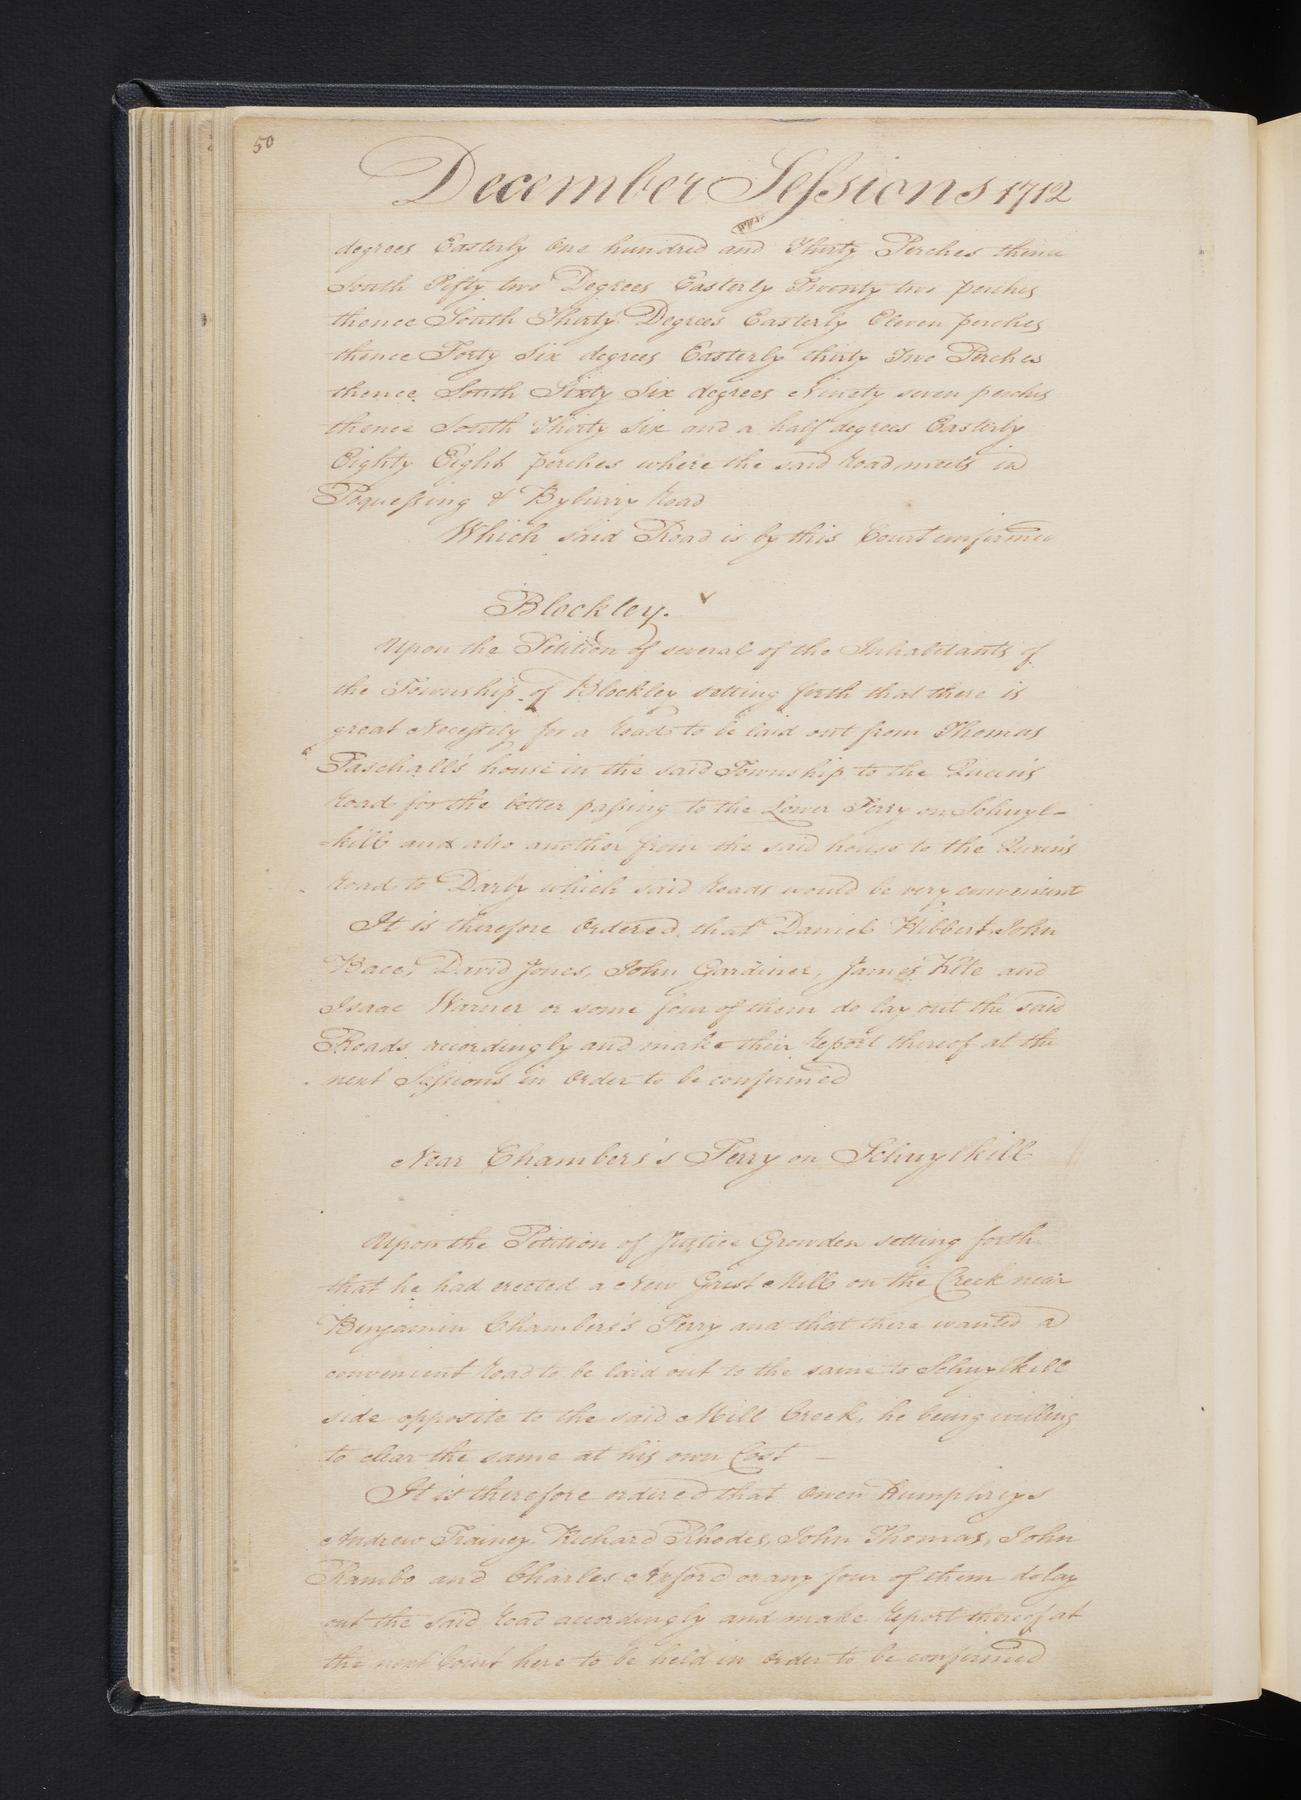 50
December Sessions 1712
degrees Easterly One hundred and Thirty Perches thence
South Fifty two Degrees Easterly Twenty two perches
thence South Thirty Degrees Easterly Eleven perches
thence Forty Six degrees Easterly thirty Two Perches
thence South Sixty Six degrees Ninety seven perches
thence South Thirty Six and a half degrees Easterly
Eighty Eight perches where the said Road meets in
Poquessing & Byburry Road
Which said Road is by this Court confirmed
Blockley.
Upon the Petition of several of the Inhabitants of
the Township of Blockley setting forth that there is
great Necessity for a Road to be laid out from Thomas
Paschall's house in the said Township to the Queen's
Road for the better passing to the Lower Ferry on Schuyl-
kill and also another from the said house to the Queen's
Road to Darby which said Roads would be very convenient
It is therefore Ordered that Daniel Hibbert John
David Jones, John Gardiner, James Kite and
Isaac Warner or some four of them do lay out the said
Roads accordingly and make their Report thereof at the
next Sessions in Order to be confirmed
Near Chambers's Ferry on Schuylkill
Upon the Petition of Justice Growden setting forth
that he had erected a New Grist Mill on the Creek near
Benjamin Chambers's Ferry and that there wanted a
convenient Road to be laid out to the same to Schuylkill
side opposite to the said Mill Creek, he being willing
to clear the same at his own Cost —
It is therefore ordered that Owen Humphreys
Andrew Richard Rhodes, John Thomas, John
Rambo and Charles or any four of them do lay
out the said Road accordingly and make Report thereof at
the next Court here to be held in Order to be confirmed